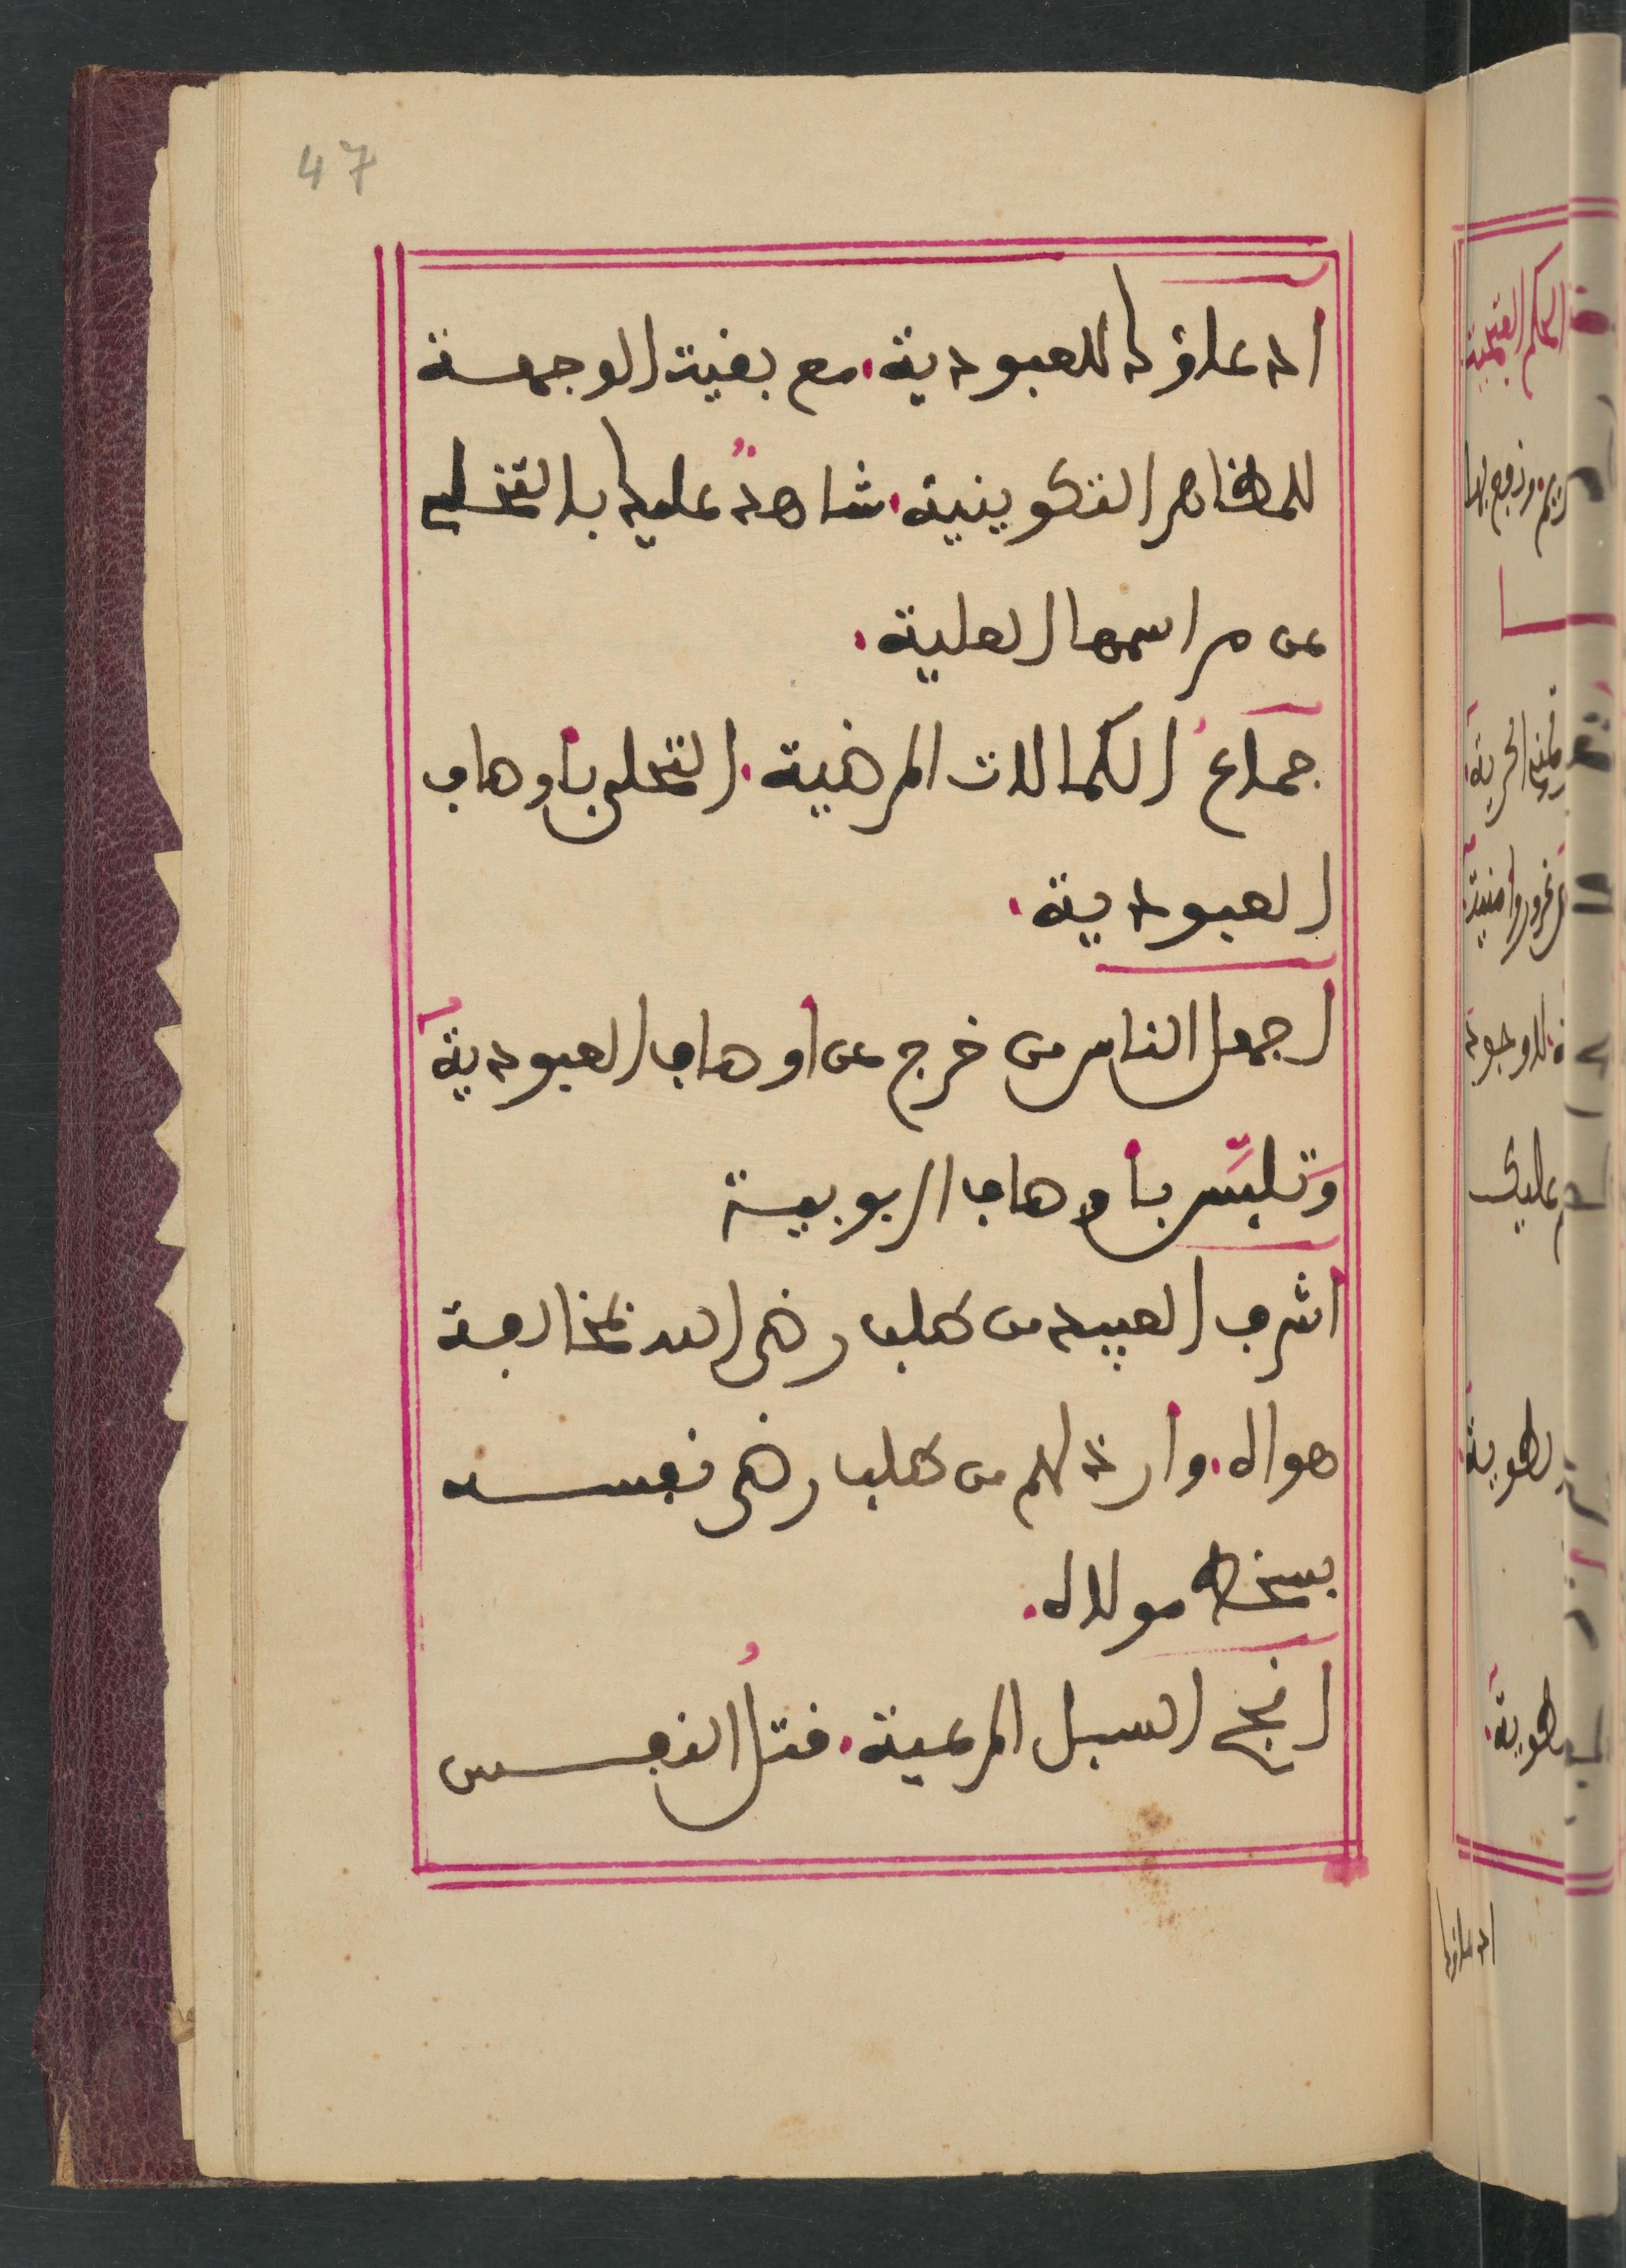 47
ادعاؤك للعبودية. مع بقية الوجهة
للمظاهر التكوينية. شاهدٌ عليك بالتخلي
عن مراسمها العلية.
جماعُ الكمالات المرضية. التحلي بأوصاف
العبودية.
أجهل الناس من خرج عن أوصاف العبودية
وَتلبَّس بأوصاف الربوبية
أشرف العبيد من طلب رضى الله بمخالفة
هواه. وأرذلهم من طلب رضى نفسه
بسخط مولاه.
أنجح السبل المرعية. قتلُ النفس
ادعاؤك